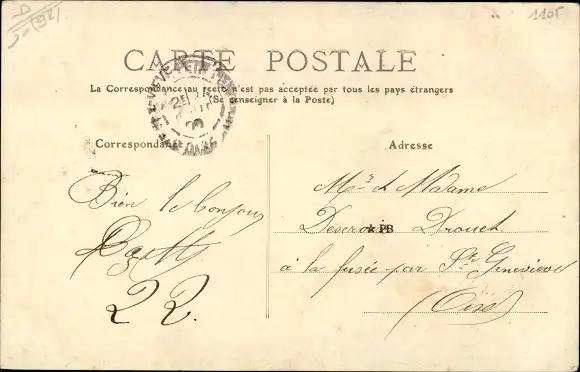 D
1105
CARTE POSTALE
La Correspondance au recto n'est pas acceptée par tous les pays étrangers
(Se renseigner à la Poste)
Correspondance
Adresse
Bien le bonjour
22
Mr et Madame
PB Drouet
à la fusée par Ste Geneviève
(Oise)